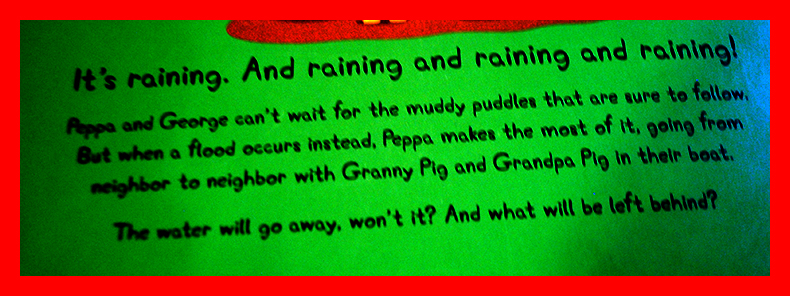 It's raining. And raining and raining and raining!
Peppa and George can't wait for the muddy puddles that are sure to follow.
But when a flood occurs instead, Peppa makes the most of it, going from
neighbor to neighbor with Granny Pig and Grandpa Pig in their boat.
The water will go away, won't it? And what will be left behind?